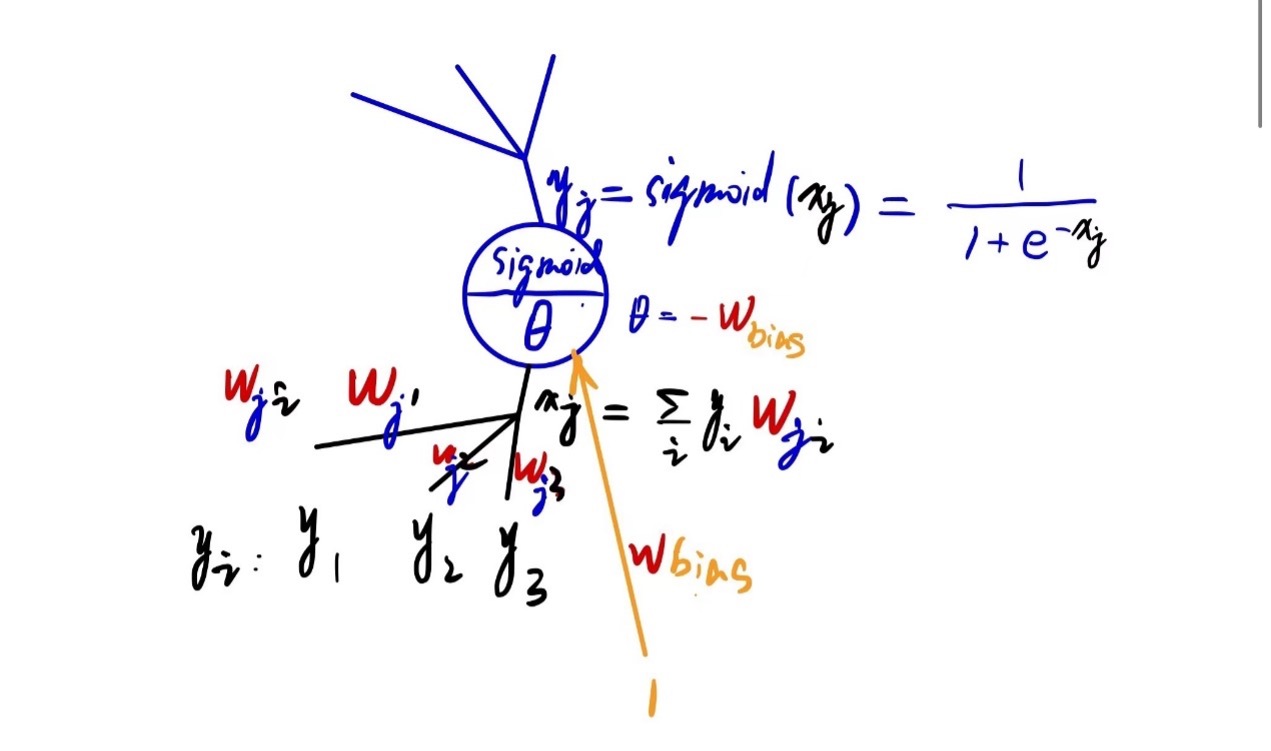 y_j = sigmoid (x_j) = 1 / (1 + e^{-x_j})
sigmoid
θ
θ = - W_bias
W_ji W_j1
x_j = Σ_i y_i W_ji
W_j2 W_j3
y_i: y_1 y_2 y_3
W_bias
1